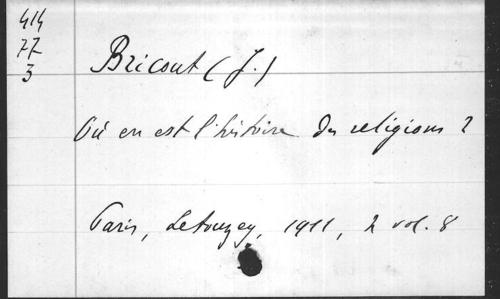 414
77
3
Bricout (J.)
Où en est l'histoire des religions ?
Paris, Letouzey, 1911, 2 vol. 8